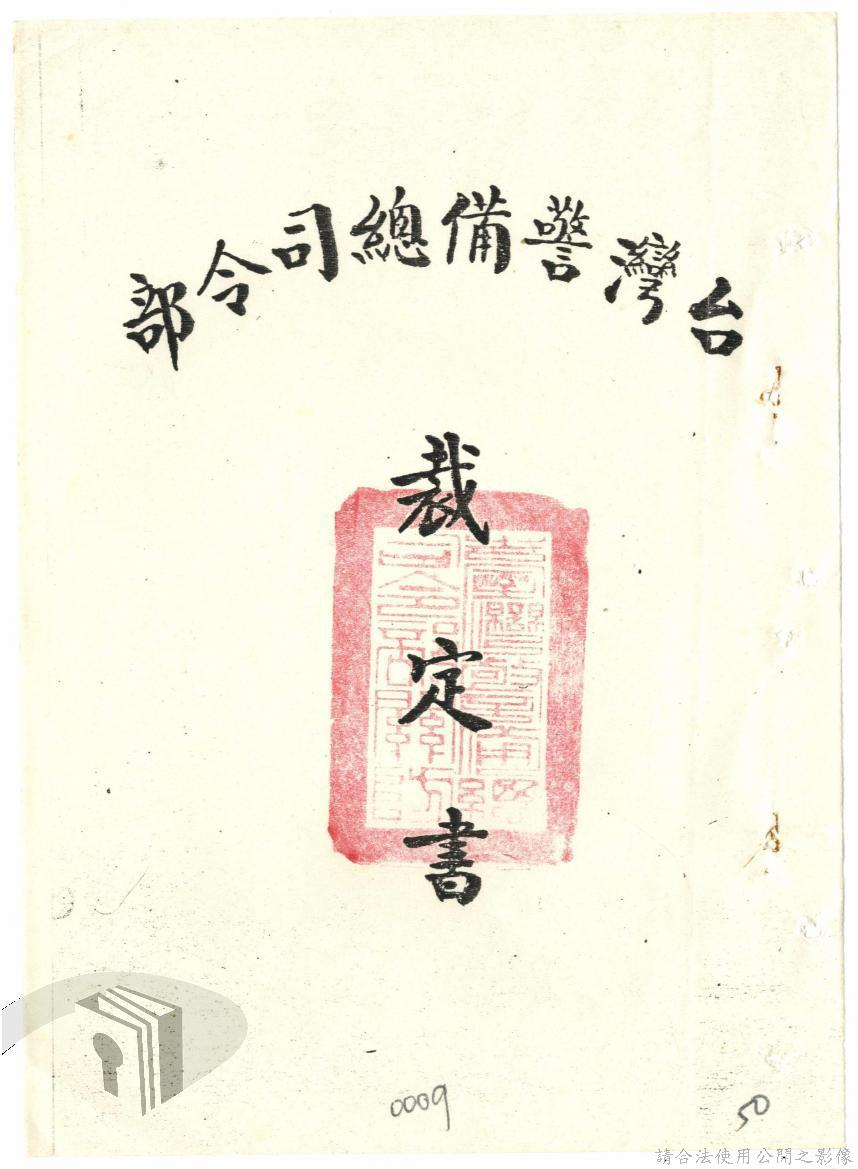 台灣警備總司令部
裁定書
0009
50
請合法使用公開之影像